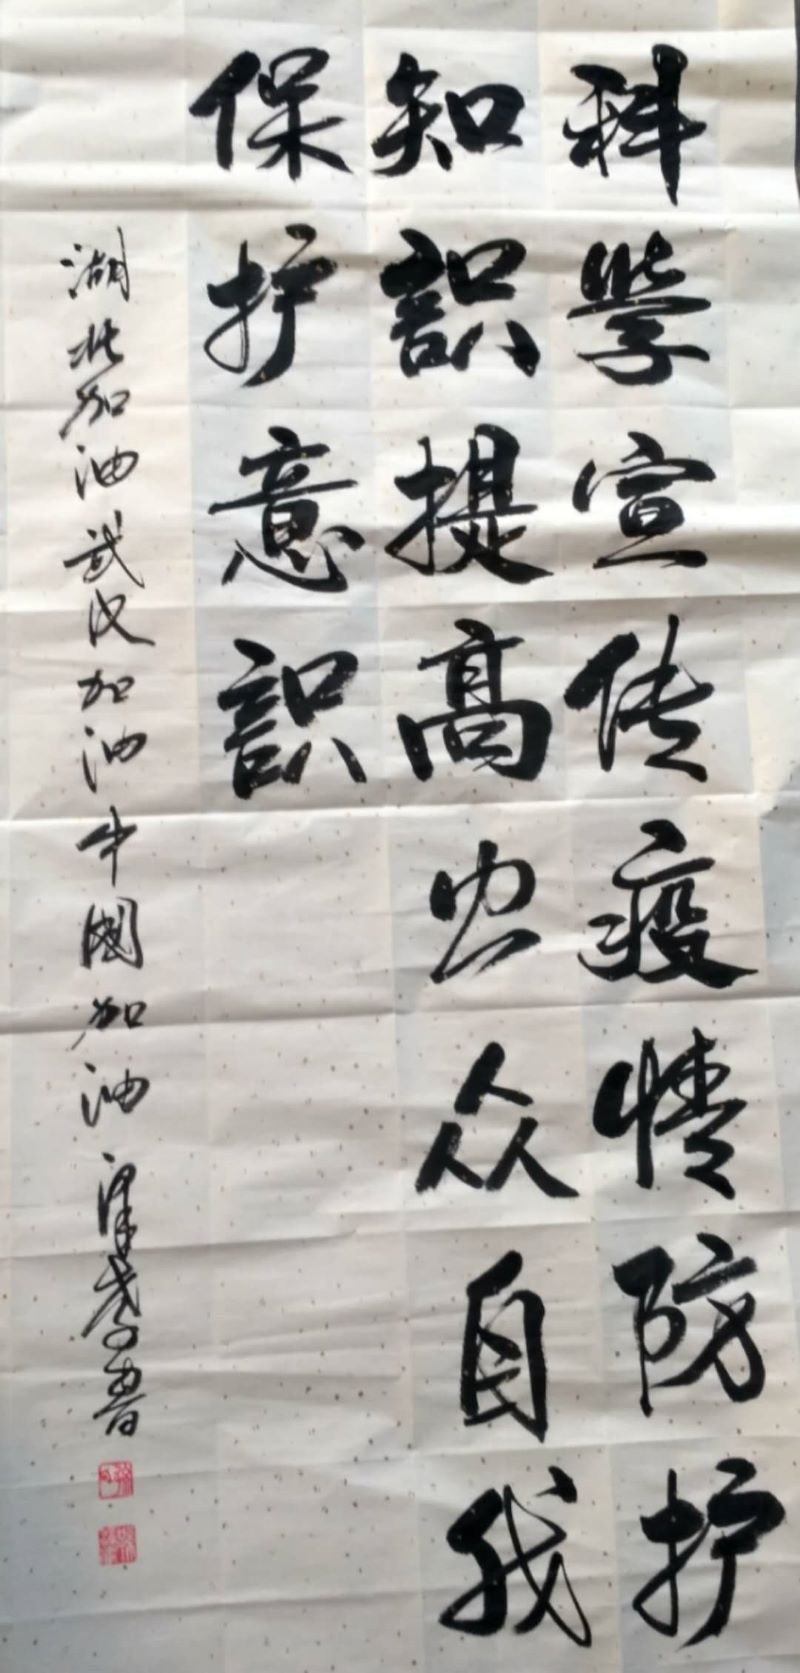 科学宣传疫情防护
知识提高公众自我
保护意识
湖北加油武汉加油中國加油